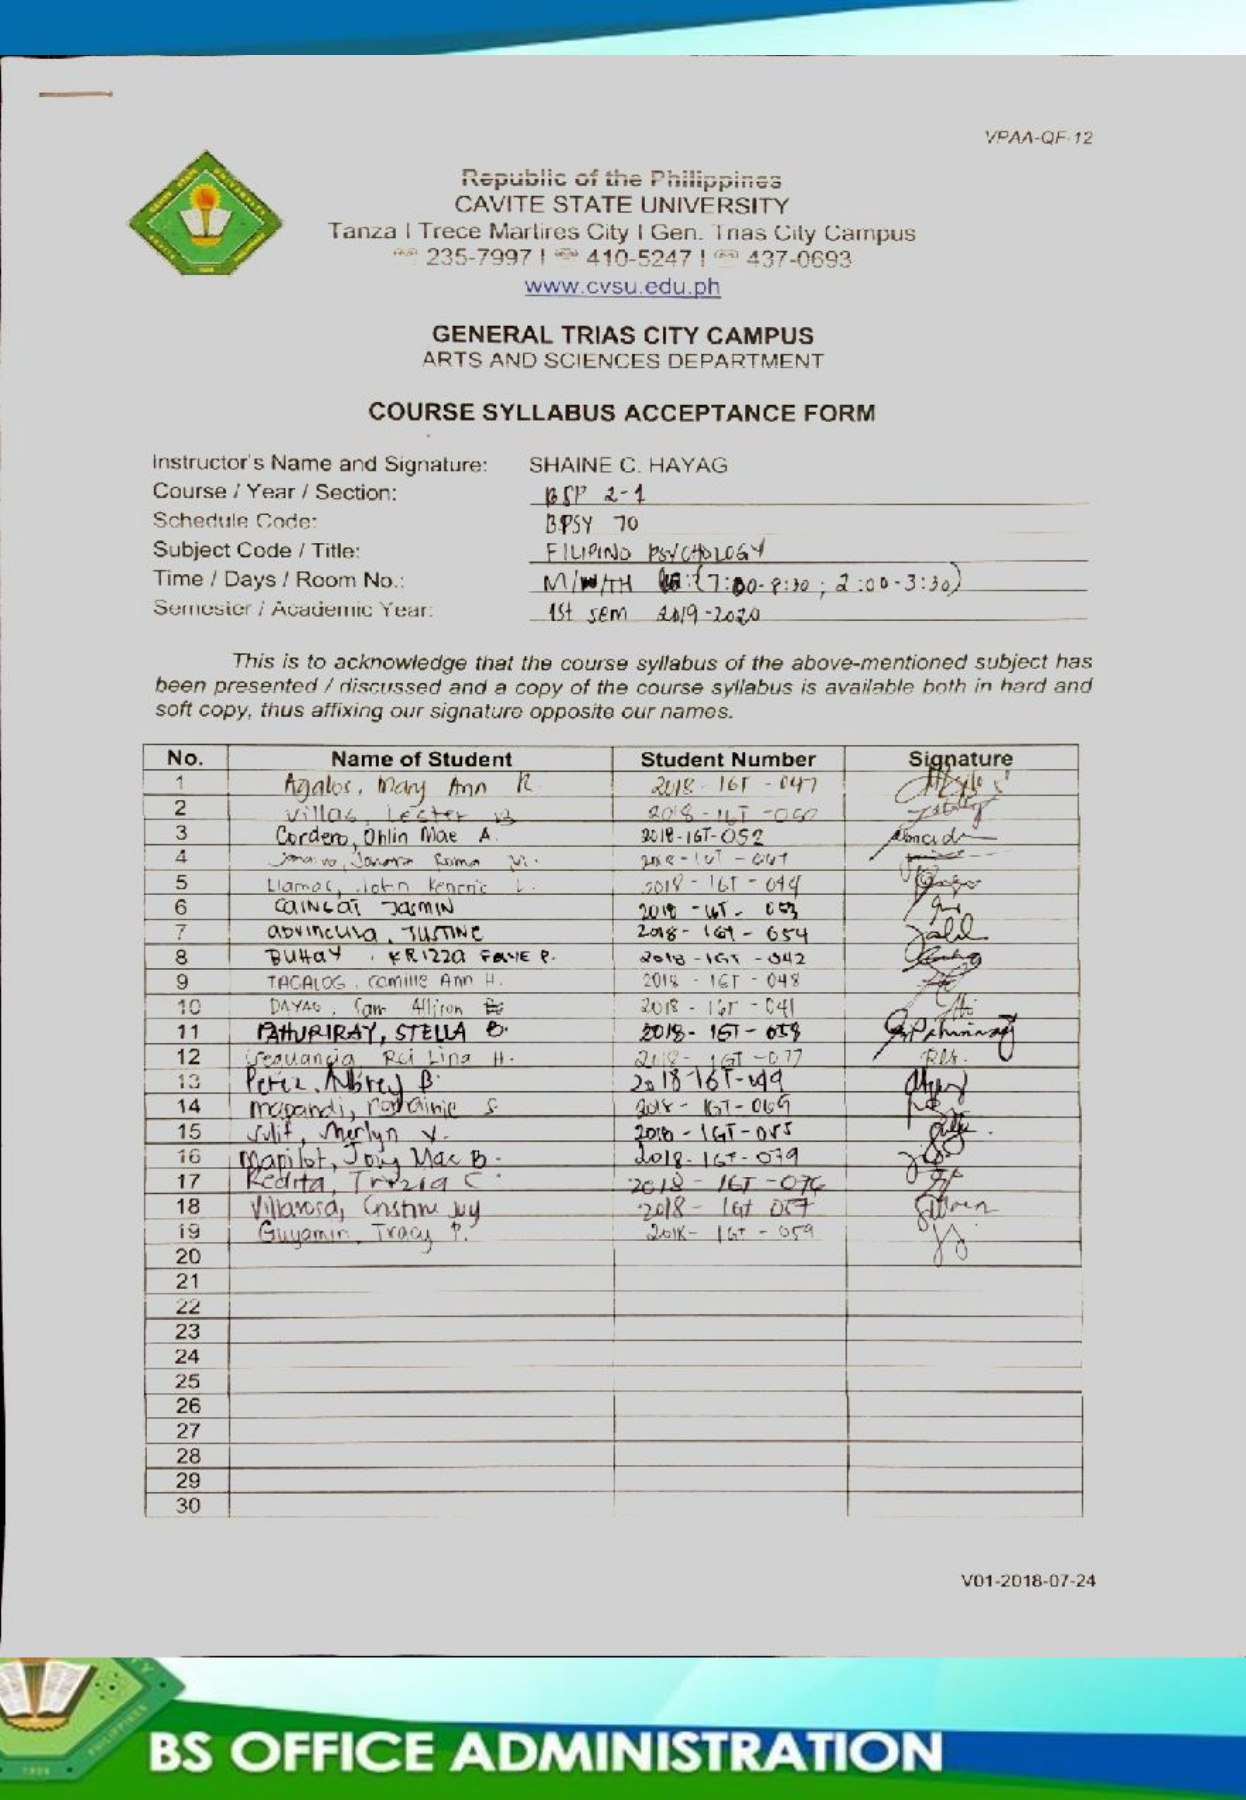 VPAA-QF-12
Republic of the Philippines
CAVITE STATE UNIVERSITY
Tanza I Trece Martires City I Gen. Trias City Campus
235-7997 I 410-5247 I 437-0693
www.cvsu.edu.ph
GENERAL TRIAS CITY CAMPUS
ARTS AND SCIENCES DEPARTMENT
COURSE SYLLABUS ACCEPTANCE FORM
Instructor's Name and Signature: SHAINE C. HAYAG
Course / Year / Section: BSP 2-1
Schedule Code: BPSY 70
Subject Code / Title: FILIPINO PSYCHOLOGY
Time / Days / Room No.: M/W/TH (7:00-8:30 ; 2:00-3:30)
Semester / Academic Year: 1st sem 2019-2020
This is to acknowledge that the course syllabus of the above-mentioned subject has
been presented / discussed and a copy of the course syllabus is available both in hard and
soft copy, thus affixing our signature opposite our names.
No. Name of Student Student Number Signature
1 Agalos, Mary Ann R. 2018-1GT-047
2 Villas, Lester B 2018-1GT-
3 Cordero, Ohlin Mae A. 2018-1GT-052
4 2018-1GT-
5 Llamas, John L. 2018-1GT-044
6 CAINGAT JASMIN 2018-1GT-
7 ADVINCULA, JUSTINE 2018-1GT-054
8 BUHAY, KRIZZA FAYE P. 2018-1GT-042
9 TAGALOG, Camille Ann H. 2018-1GT-048
10 DAYAG, Sam Allison 2018-1GT-041
11 PAHURIRAY, STELLA B. 2018-1GT-058
12 Rei Lina H. 2018-1GT-077
13 Perez, Aubrey B. 2018-1GT-049
14 Mapandi, S. 2018-1GT-069
15 Sulit, Merlyn V. 2018-1GT-055
16 Mapilot, Joy Mae B. 2018-1GT-079
17 Redita, Trizia C. 2018-1GT-076
18 Villarosa, Cristine Joy 2018-1GT 057
19 Guyamin, Tracy P. 2018-1GT-059
20
21
22
23
24
25
26
27
28
29
30
V01-2018-07-24
BS OFFICE ADMINISTRATION